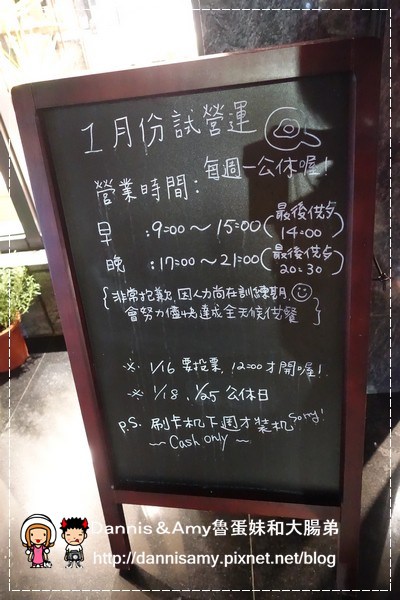 1月份試營運
每週一公休喔!
營業時間:
早 :9=00~15=00(最後供歺 14=00)
晚 :17=00~21=00(最後供歺 20=30)
{非常抱歉,因人力尚在訓練期,
會努力儘快達成全天候供餐}
※ 1/16 要投票, 12=00才開喔!
※ 1/18、1/25 公休日
P.S. 刷卡机下週才裝机 Sorry!
~ Cash only ~
Dannis & Amy魯蛋妹和大腸弟
http://dannisamy.pixnet.net/blog